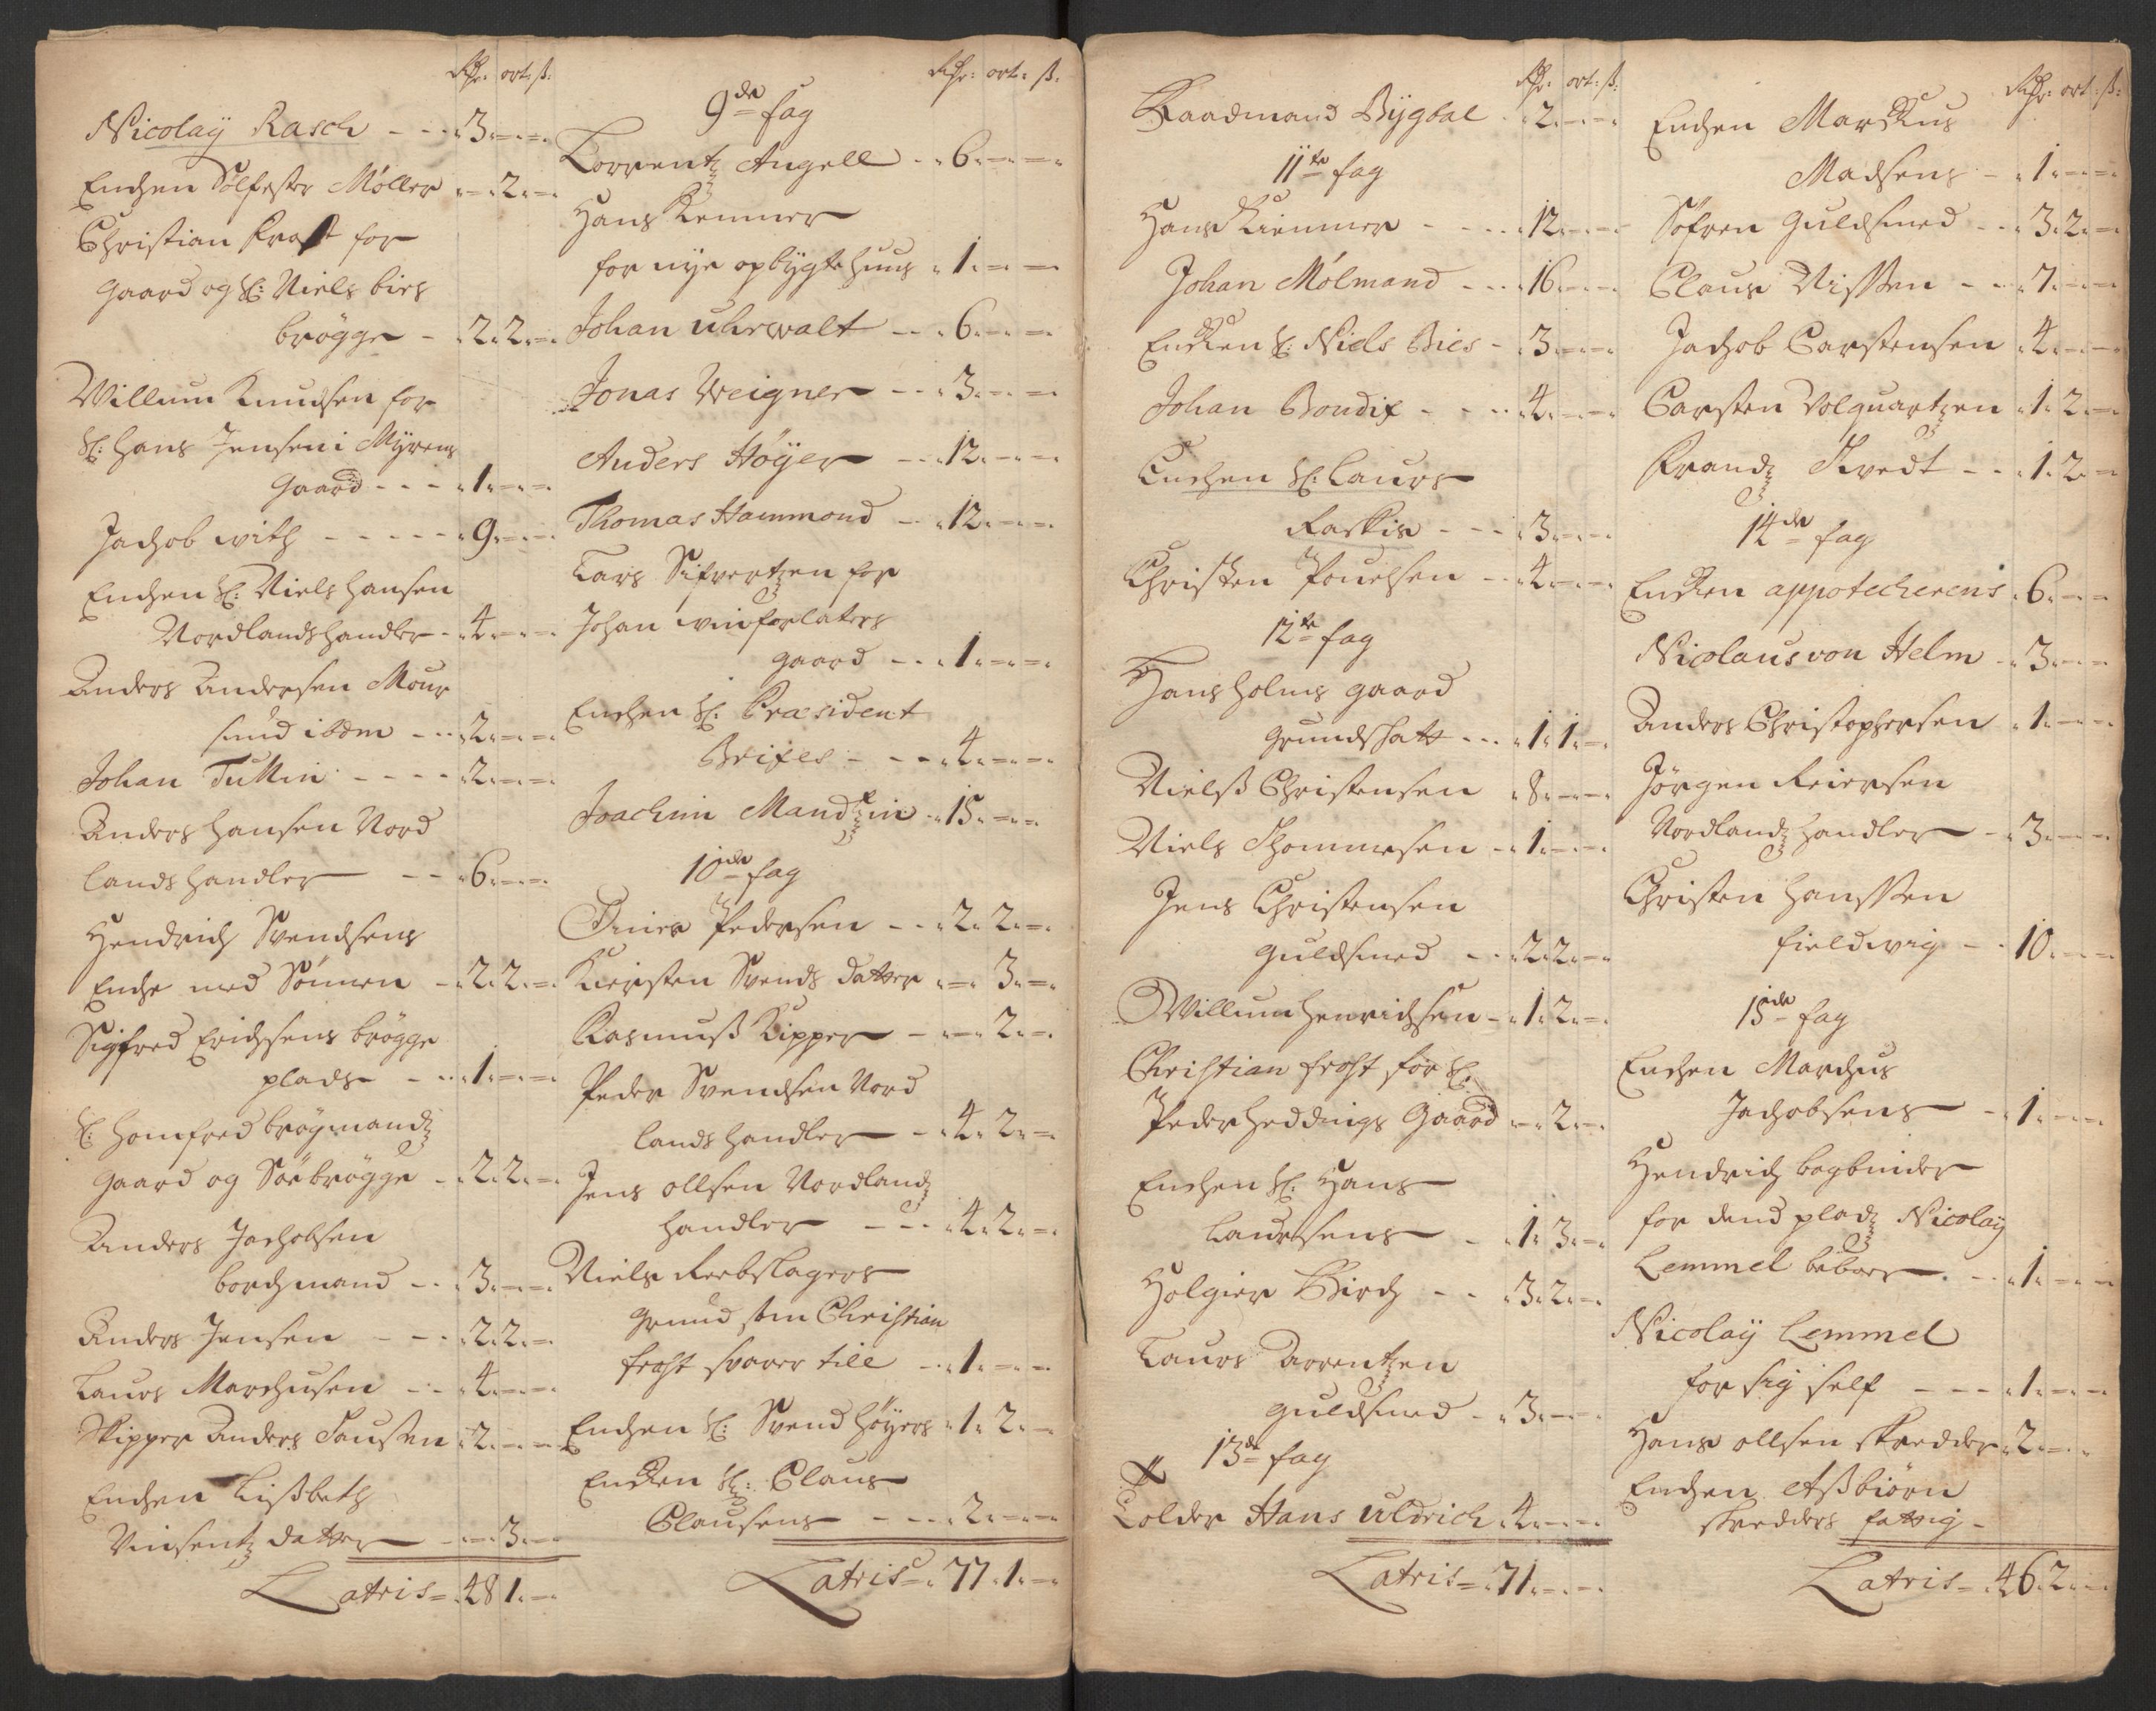 Rdr: ort: ß:
Nicolaÿ Rasch - - - 3 „ - „ -
Enchen Sølfester Møller „ - „ 2 „ -
Christian Frost for
gaard og Sl: Niels bies
brøgge - 2 „ 2 „ -
Willum Knudsen for
Sl: Hans Jensen i Mÿrens
gaard - - - „ 1 „ - „ -
Jachob with - - - - - „ 9 „ - „ -
Enchen Sl: Niels Hansen
Nordlandshandler - „ 4 „ - „ -
Anders Andersen Mour
ibdm - - „ 2 „ - „ -
Johan Tullin - - - - „ 2 „ - „ -
Anders Hansen Nord
lands handler - - „ 6 „ - „ -
Hendrich Svendsens
Enche med Sønnen - „ 2 „ 2 „ -
Sigfred Erichsens brøgge
plads - - - „ 1 „ - „ -
Sl: Homfred brøgmandz
gaard og Søebrøgge - „ 2 „ 2 „ -
Anders Jachobsen
borchmand - - „ 3 „ - „ -
Anders Jensen - - - „ 2 „ 2 „ -
Laurs Marchusen - - „ 4 „ - „ -
Skipper Anders „ 2 „ - „ -
Enchen Lißbeth
Vinsentz datter - „ - „ 3 „ -
Latris = „ 48 „ 1 „ -
Rdr: ort: ß:
9de fag
Lorrentz Angell - - „ 6 „ - „ -
Hans Kemmer
for nÿe opbÿgte huus „ 1 „ - „ -
Johan uhrwalt - - „ 6 „ - „ -
Jonas Weigner - - „ 3 „ - „ -
Anders Høÿer - - „ 12 „ - „ -
Thomas Hammond - „ 12 „ - „ -
Lars Sifvertzen for
Johan winforlaters
gaard - - „ 1 „ - „ -
Enchen Sl: Præsident
Brixes - - - „ 4 „ - „ -
Joachim Mandtzin „ 15 „ - „ -
10de fag
Einer Pedersen - - „ 2 „ 2 „ -
Kiersten Svends datter „ - „ 3 „ -
Rasmuß Kipper - „ - „ 2 „ -
Peder Svendsen Nord
lands handler - „ 4 „ 2 „ -
Jens ollsen Nordlandz
handler - - - „ 4 „ 2 „ -
Niels Reebslagers
grund som Christian
frost svarer till - „ 1 „ - „ -
Enchen Sl: Svend Høÿers „ 1 „ 2 „ -
Encken Sl: Claus
Clausens - - - „ 2 „ - „ -
Latris = „ 77 „ 1 „ -
Rdr: ort: ß:
Raadmand Bÿgbal „ 2 „ - „ -
11te fag
Hans Kiemmer - - - „ 12 „ - „ -
Johan Mølmand - - - „ 16 „ - „ -
Encken Sl: Niels Bies - „ 3 „ - „ -
Johan Bondix - - - „ 4 „ - „ -
Enchen Sl: Laurs
Raskis - - - „ 3 „ - „ -
Christen Pouelsen - - „ 4 „ - „ -
12te fag
Hans holms gaard
grundskatt - - - „ 1 „ 1 „ -
Nielß Christensen „ 8 „ - „ -
Niels Thommesen - „ 1 „ - „ -
Jens Christensen
guldsmed - - „ 2 „ 2 „ -
Willum Henrichsen - „ 1 „ 2 „ -
Christian frost for Sl:
Peder Heddings Gaard „ - „ 2 „ -
Enchen Sl: Hans
Laursens - „ 1 „ 3 „ -
Holgier Birch - - „ 3 „ 2 „ -
Laurs Arrentzen
guldsmed - „ 3 „ - „ -
13de fag
Tolder Hans uldrich „ 4 „ - „ -
Latris = „ 71 „ - „ -
Rdr: ort: ß:
Enchen Marckus
Madsens - „ 1 „ - „ -
Søfren guldsmed - - „ 3 „ 2 „ -
Claus Nissen - - „ 7 „ - „ -
Jachob Carstensen „ 4 „ - „ -
Carsten Volquartzen „ 1 „ 2 „ -
Frandz - - „ 1 „ 2 „ -
14de fag
Encken appotecherens „ 6 „ - „ -
Nicolaus von Helm - „ 3 „ - „ -
Anders Christophersen „ 1 „ - „ -
Jørgen Reiersen
Nordlandz handler - „ 3 „ - „ -
Christen Hanssen
fieldwig - - 10 „ - „ -
15de fag
Enchen Marchus
Jachobsens - „ 1 „ - „ -
Hendrich bogbinder
for dend pladz Nicolaÿ
Lemmel beboer - - „ 1 „ - „ -
Nicolaÿ Lemmel
for sig self - - - „ 1 „ - „ -
Hans ollsen skredder „ 2 „ - „ -
Enchen Aßbiørn
skredders fattig -
Latris = „ 46 „ 2 „ -